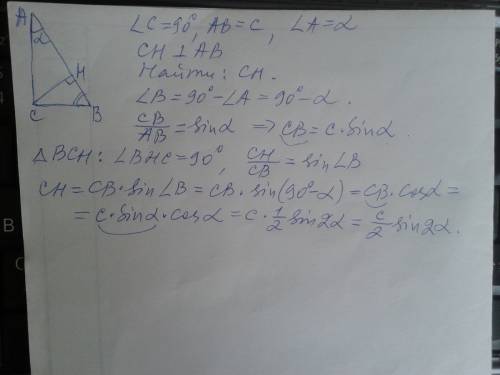 A
α
H
C
B
∠C=90°, AB=c, ∠A=α
CH ⊥ AB
Найти: CH.
∠B=90°-∠A=90°-α.
CB/AB=sinα ⇒ CB=c·sinα.
△BCH: ∠BHC=90°, CH/CB=sin∠B
CH=CB·sin∠B=CB·sin(90°-α)=CB·cosα=
=c·sinα·cosα=c·1/2 sin2α=c/2 sin2α.